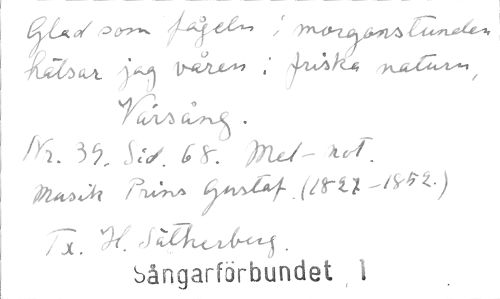 Glad som fågeln i morgonstunden
hälsar jag våren i friska naturn,
Vårsång.
Nr. 39. Sid. 68. Mel-not.
Musik Prins Gustaf. (1827-1852.)
Tx. H. Sätherberg.
Sångarförbundet 1